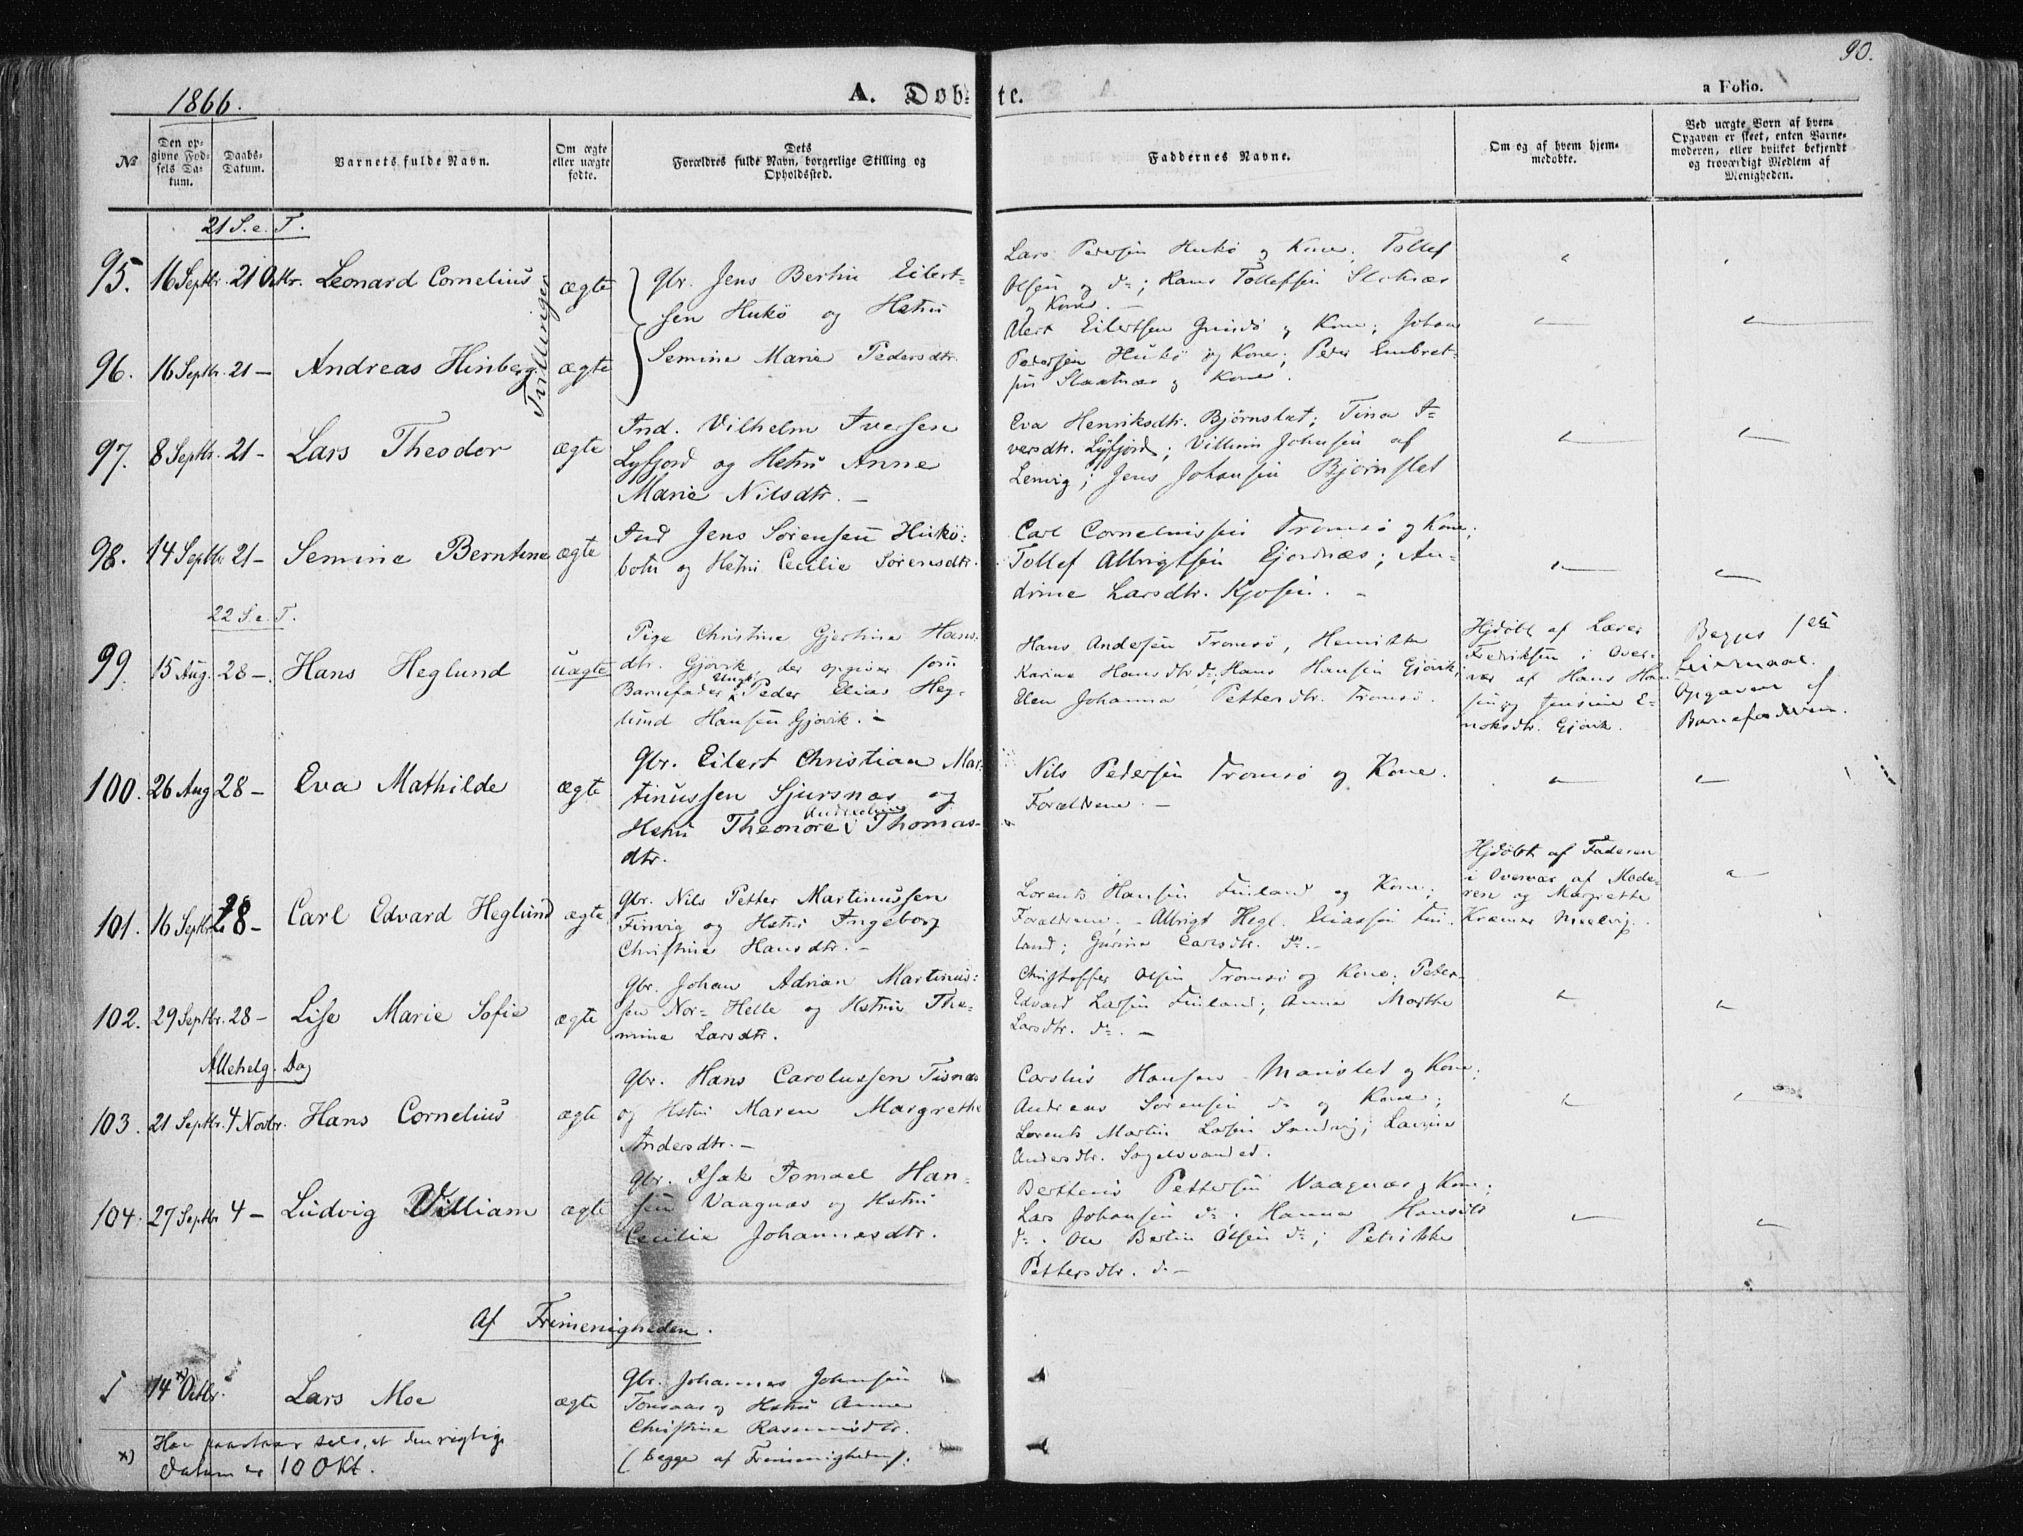 90.
1866.
A. Døbte.
a Folio.
No
Den opgivne Fødsels Datum.
Daabs-Datum.
Varnets fulde Navn.
Om ægte eller uægte fødte.
Dets Forældres fulde Navn, borgerlige Stilling og Opholdssted.
Faddernes Navne.
Om og af hvem hjemmedøbte.
Ved uægte Børn af hvem Opgaven er skeet, enten Barnemoderen, eller hvilket bekjendt og troværdigt Medlem af Menigheden.
21 S. e. T.
95. 16 Septbr. 21 Octbr. Leonard Cornelius ægte
Tvillinger
Gbr. Jens Bertin Eilert-
sen Hukø og Hstru
Semine Marie Pedersdtr.
Lars Pedersen Hukø og Kone; Tollef
Olsen og do; Hans Tollefsen
og Kone. —
96. 16 Septbr. 21 — Andreas Hinberg ægte
Eilertsen Grindø og Kone; Johan
Pedersen Hukø og Kone; Peder Embret-
sen og Kone.
97. 8 Septbr. 21 — Lars Theodor ægte
Ind. Vilhelm Iversen
Lyfjord og Hstru Anne
Marie Nilsdtr. —
Eva Henriksdtr. Bjørnslet; Tina I-
versdtr. Lyfjord; Villum Johnsen af
Lenvig; Jens Johansen Bjørnslet
98. 14 Septbr. 21 — Semine Berntine ægte
Ind Jens Sørensen Hukø-
botn og Hstru Cecilie Sørensdtr.
Carl Corneliussen Tromsø og Kone;
Tollef Albrigtsen Ejordnæs; An-
drine Larsdtr. Kjosen. —
22 S. e. T.
99. 15 Aug. 28 — Hans Heglund uægte
Pige Christine Gjertine Hans-
dtr. Gjøvik, der opgiver som
Barnefader Ungk. Peder Elias Heg-
lund Hansen Gjøvik. —
Hans Andersen Tromsø, Henrikke
Karine Hansdtr do, Hans Hansen Gjøvik
Elen Johanna Pettersdtr. Tromsø.
Hjdøbt af Lærer
Fredriksen i Over-
vær af Hans Han-
sen og Jensine E-
noksdtr. Gjøvik.
Begges 1ste
Leiermaal.
Opgaven af
Barnefaderen.
100. 26 Aug 28 — Eva Mathilde ægte
Gbr. Eilert Christian Mar-
tinussen Sjursnæs og
Hstru Theonore Andreeline Thomas-
dtr.
Nils Pedersen Tromsø og Kone.
Forældrene. —
101. 16 Septbr. 28 — Carl Edvard Heglund ægte
Gbr. Nils Petter Martinussen
Finvig og Hstru Ingeborg
Christine Hansdtr. —
Lorents Hansen Finland og Kone;
Forældrene; — Albrigt Hegl. Eliassen Fin-
land; Gurine Carlsdtr. do. —
Hjdøbt af Faderen
i Overvær af Mode-
ren og Margrethe
Kræmer
102. 29 Septbr. 28 — Lise Marie Sofie ægte
Gbr. Johan Adrian Martinus-
sen Nor-Helle og Hstru Tho-
mine Larsdtr.
Christoffer Olsen Tromsø og Kone; Peter
Edvard Larsen Finland; Anna Marthe
Larsdtr. do. —
Allehelg. Dag
103. 21 Septbr. 4 Novbr. Hans Cornelius ægte
Gbr. Hans Carolussen Tisnæs
og Hstru Maren Margrethe
Andersdtr. —
Carolus Hansen og Kone;
Andreas Sørensen do og Kone;
Lorents Martin Larsen Sandvig; Lavine
Andersdtr. Sagelvvandet.
104. 27 Septbr 4 — Ludvig William ægte
Gbr. Isak Ismael Han-
sen Vaagnæs og Hstru
Cecilie Johannesdtr.
Bertheus Pettersen Vaagnæs og Kone;
Lars Johansen do; Hanna Hansdtr
do. Ole Bertin Olsen do; Petrikke
Pettersdtr. do —
Af Frimenigheden.
1 14 x) Octbr. Lars Moe ægte
Gbr. Johannes Johnsen
Tonsaas og Hstru Anne
Christine Rasmusdtr.
(begge af Frimenigheden).
x) Han paastaar selv, at den rigtige
Datum er 10 Okt.